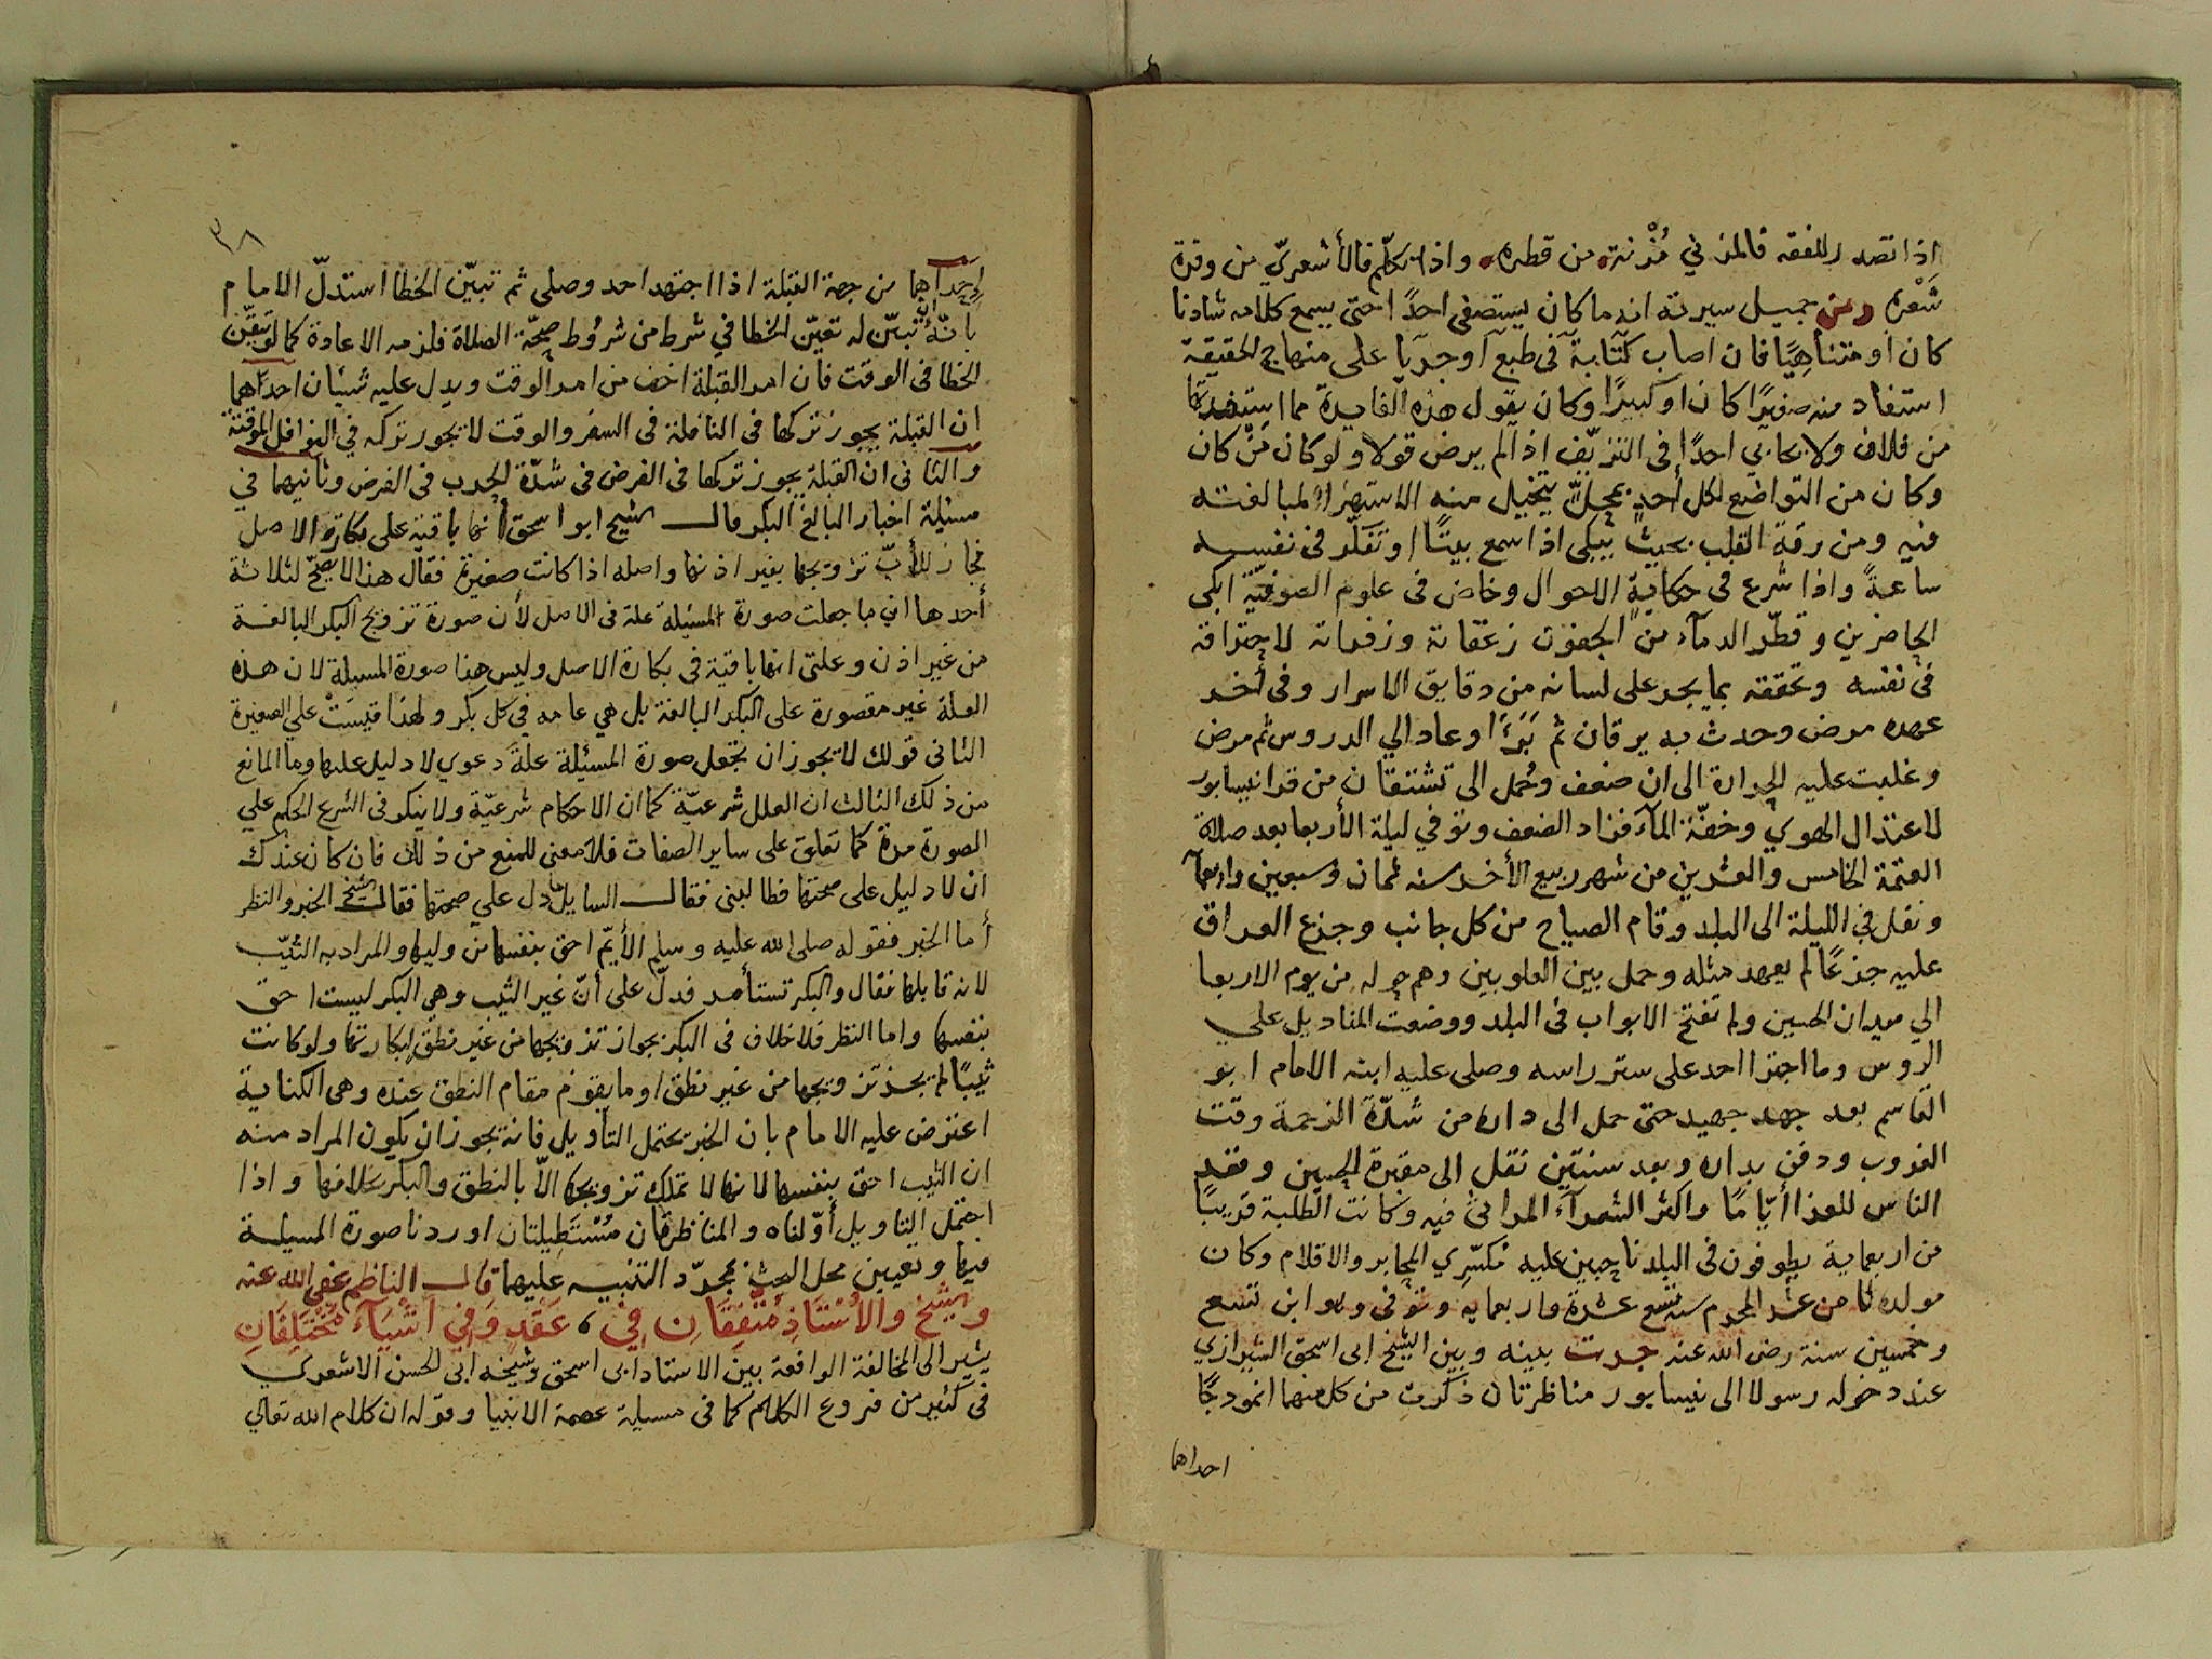 اذا تصدر للفقه فالمزني مُزْنة من قطره واذا تكلّم فالأشعريّ من وفرة
شَعْره ومن جميل سيرته انه ما كان يستصغر احدًا حتى يسمع كلامه شادنا
كان او متناهيًا فان اصاب كتّابة في طبع اوجريا على منهاج الحقيقة
استفاد منه صغيرًا كان او كبيرًا وكان يقول هذه الفايدة مما استفدتها
من فلان ولا يحابي احدًا في التزييف اذا لم يرض قولا ولو كان من كان
وكان من التواضع لكل أحدٍ بمحلّ يتخيل منه الاستهزاء لمبالغته
فيه ومن رقة القلب بحيث يبكى اذا سمع بيتًا او تفكّر في نفسه
ساعةً واذا شرع فى حكاية الاحوال وخاض فى علوم الصوفيّة ابكى
الحاضرين وقطّر الدمآء من الجفون زعقاته وزفراته لاحتراقه
في نفسه وتحققه بما يجر على لسانه من دقايق الاسرار وفى أخر
عهده مرض وحدث به يرقان ثم بَرَءَا وعاد الي الدروس ثم مرض
وغلبت عليه الحرارة الى ان ضعف وحُمل الى تشتقان من قرا نيسابور
لاعتدال الهوي وخفّة المآء فزاد الضعف وتوفي ليلة الأربعا بعد صلاة
العتمة الخامس والعشرين من شهر ربيع الأخر سنه ثمان وسبعين واربعمآ
ونقل في الليلة الى البلد وقام الصياح من كل جانب وجزع الفراق
عليه جزعًا لم يعهد مثله وحمل بين العلوبين وهم حوله من يوم الاربعا
الي ميدان الحسين ولم تفتح الابواب فى البلد ووضعت المناديل على
الروس وما اجترا احد على ستر راسه وصلى عليه ابنه الامام ابو
القاسم بعد جهد جهيد حتى حمل الى داره من شدّة الزحمة وقت
الغروب ودفن بداره وبعد سنتين نقل الى مقبرة الحسين وقعد
الناس للعزا أيّامًا واكثر الشعرآء المراثى فيه وكانت الطلبة قريبًا
من اربعماية يطوفون فى البلد ناحبين عليه مُكسّري المحابر والاقلام وكان
مولده ثامن عشر المحرم سنة تسع عشرة واربعمايه وتوفى وهو ابن تسع
وخمسين سنة رضى الله عنه جرت بينه وبين الشيخ ابى اسحق الشيرازي
عند دخوله رسولا الى نيسابور مناظرتان ذكرت من كل منهما انموذجًا
احداهما
٣٨
احداهما من جهة القبلة اذا اجتهد احد وصلى ثم تبيّن الخطا استدلّ الامام
بانّه تبيّن له تعيّن الخطا في شرط من شروط صحّة الصلاة فلزمه الاعادة كما لو تيقّن
الخطا فى الوقت فان امر القبلة اخف من امر الوقت ويدل عليه شيئان احداهما
ان القبلة يجوز تركها فى النافلة فى السفر والوقت لا يجوز تركه في النوافل الموقتة
والثانى ان القبلة يجوز تركها فى الفرض فى شدّة الحرب فى الفرض وثانيهما في
مسئلة اخبار البالغ البكر قال الشيخ ابو اسحق أنها باقية على بكارة الاصل
فجاز للأبّ تزويجها بغير اذنها واصله اذا كانت صغيرة فقال هذا لا يصحّ لثلاثة
أحدها ان ما جعلت صورة المسئلة علة فى الاصل لأن صورة تزويج البكر البالغة
من غير اذن وعلتى انها باقية فى بكارة الاصل وليس هذا صورة المسيلة لان هذه
العلة غير مقصورة على البكر البالغة بل هي عامه في كل بكر ولهذا قيسَتْ علي الصغيرة
الثانى قولك لا يجوز ان تجعل صورة المسئلة علةً دعوي لا دليل عليها وما المانع
من ذلك الثالث ان العلل شرعيّة كما ان الاحكام شرعيّة ولا ينكر فى الشرع الحكم علي
الصورة مرة كما تعلق على ساير الصفات فلا معنى للمنع من ذلك فان كان عندك
ان لا دليل على صحتها فطالبنى فقال السايل دل علي صحتها فقال الشيخ الخبر والنظر
أما الخبر فقوله صلى الله عليه وسلم الأيّم احق بنفسها من وليها والمراد به الثيّب
لانه قابلها فقال والبكر تستأمر فدلّ على أنّ غير الثيب وهي البكر ليست احق
بنفسها واما النظر فلا خلاف فى البكر بجواز تزويجها من غير نطق لبكارتها ولو كانت
ثيبًا لم يجز تزويجها من غير نطق او ما يقوم مقام النطق عنده وهى الكناية
اعترض عليه الامام بان الخبر يحتمل التأويل فانه يجوز ان يكون المراد منه
ان الثيب احق بنفسها لانها لا تملك تزويجها الاّ بالنطق والبكر بخلافها واذا
احتمل التاويل أوّلناه والمناظرتان مُسْتَطِيلتان اوردنا صورة المسيلة
فيها وتعيين محل البحث بمجرّد التنبيه عليهما قال الناظم عفى الله عنه
والشيخ والأُسْتَاذِ مُتَّفِقَانِ فِي، عَقَدٍ وَفِي أَشْيَآءَ مُخْتَلِفَانِ
يشير الى المخالفة الواقعة بين الاستاد ابى اسحق وشيخه ابي الحسن الاشعري
فى كثير من فروع الكلام كما فى مسيلة عصمة الانبيا وقوله ان كلام الله تعالي